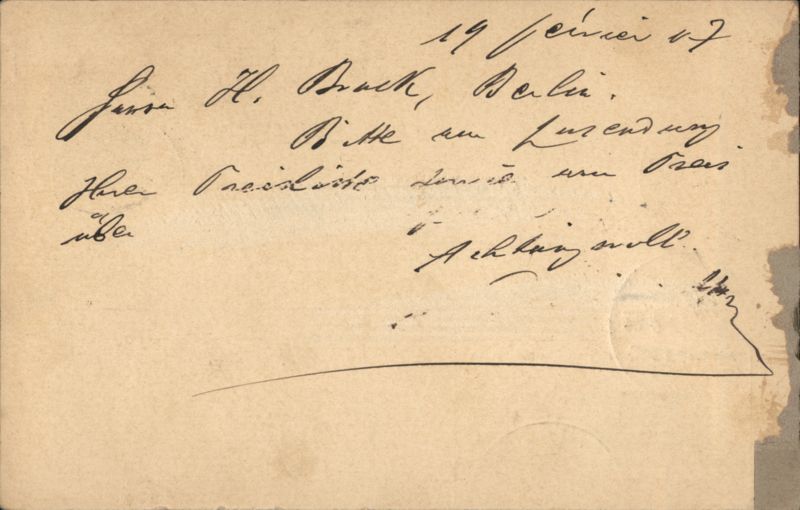 19 février 07
Herrn H. Brack, Berlin.
Bitte um Zusendung
Ihrer Preisliste sowie um Preis
über
Achtungsvoll